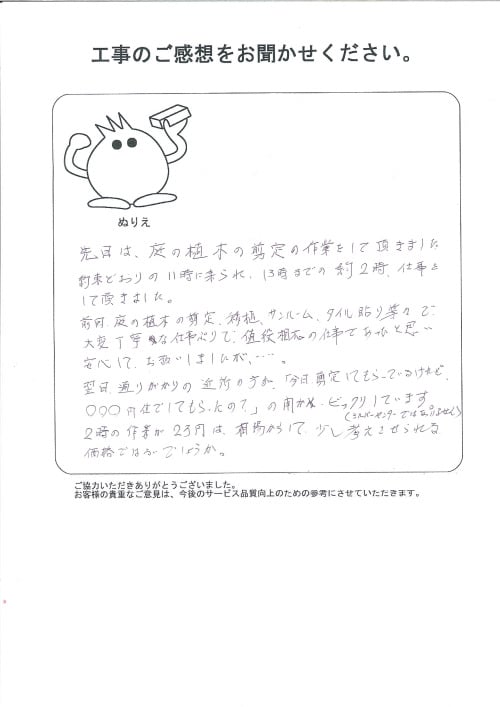 工事のご感想をお聞かせください。
ぬりえ
先日は、庭の植木の剪定の作業をして頂きました
約束どおりの11時に来られ、13時までの約2時、仕事を
して頂きました。
前回、庭の植木の剪定、移植、サンルーム、タイル貼り等々で
大変丁寧な仕事ぶりで、値段相応の仕事であったと思い
安心して、お願いしましたが、…。
翌日、通りがかりの近所の方が、「今日剪定してもらっているけれど、
〇〇〇円位でしてもらったの?」の聞かれ、ビックリしています。
(シルバーセンターではありません)
2時の作業が23円は、相場からして、少し考えさせられる
価格ではないでしょうか。
ご協力いただきありがとうございました。
お客様の貴重なご意見は、今後のサービス品質向上のための参考にさせていただきます。